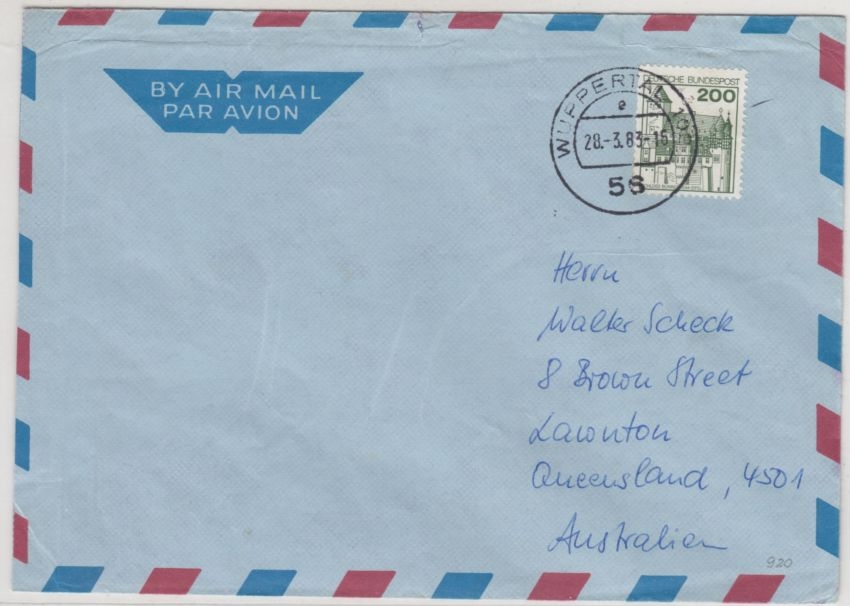 BY AIR MAIL
PAR AVION
DEUTSCHE BUNDESPOST
200
WUPPERTAL 10
e
28.-3.83-16
56
Herrn
Walter Scheck
8 Brown Street
Lawnton
Queensland, 4501
Australien
920